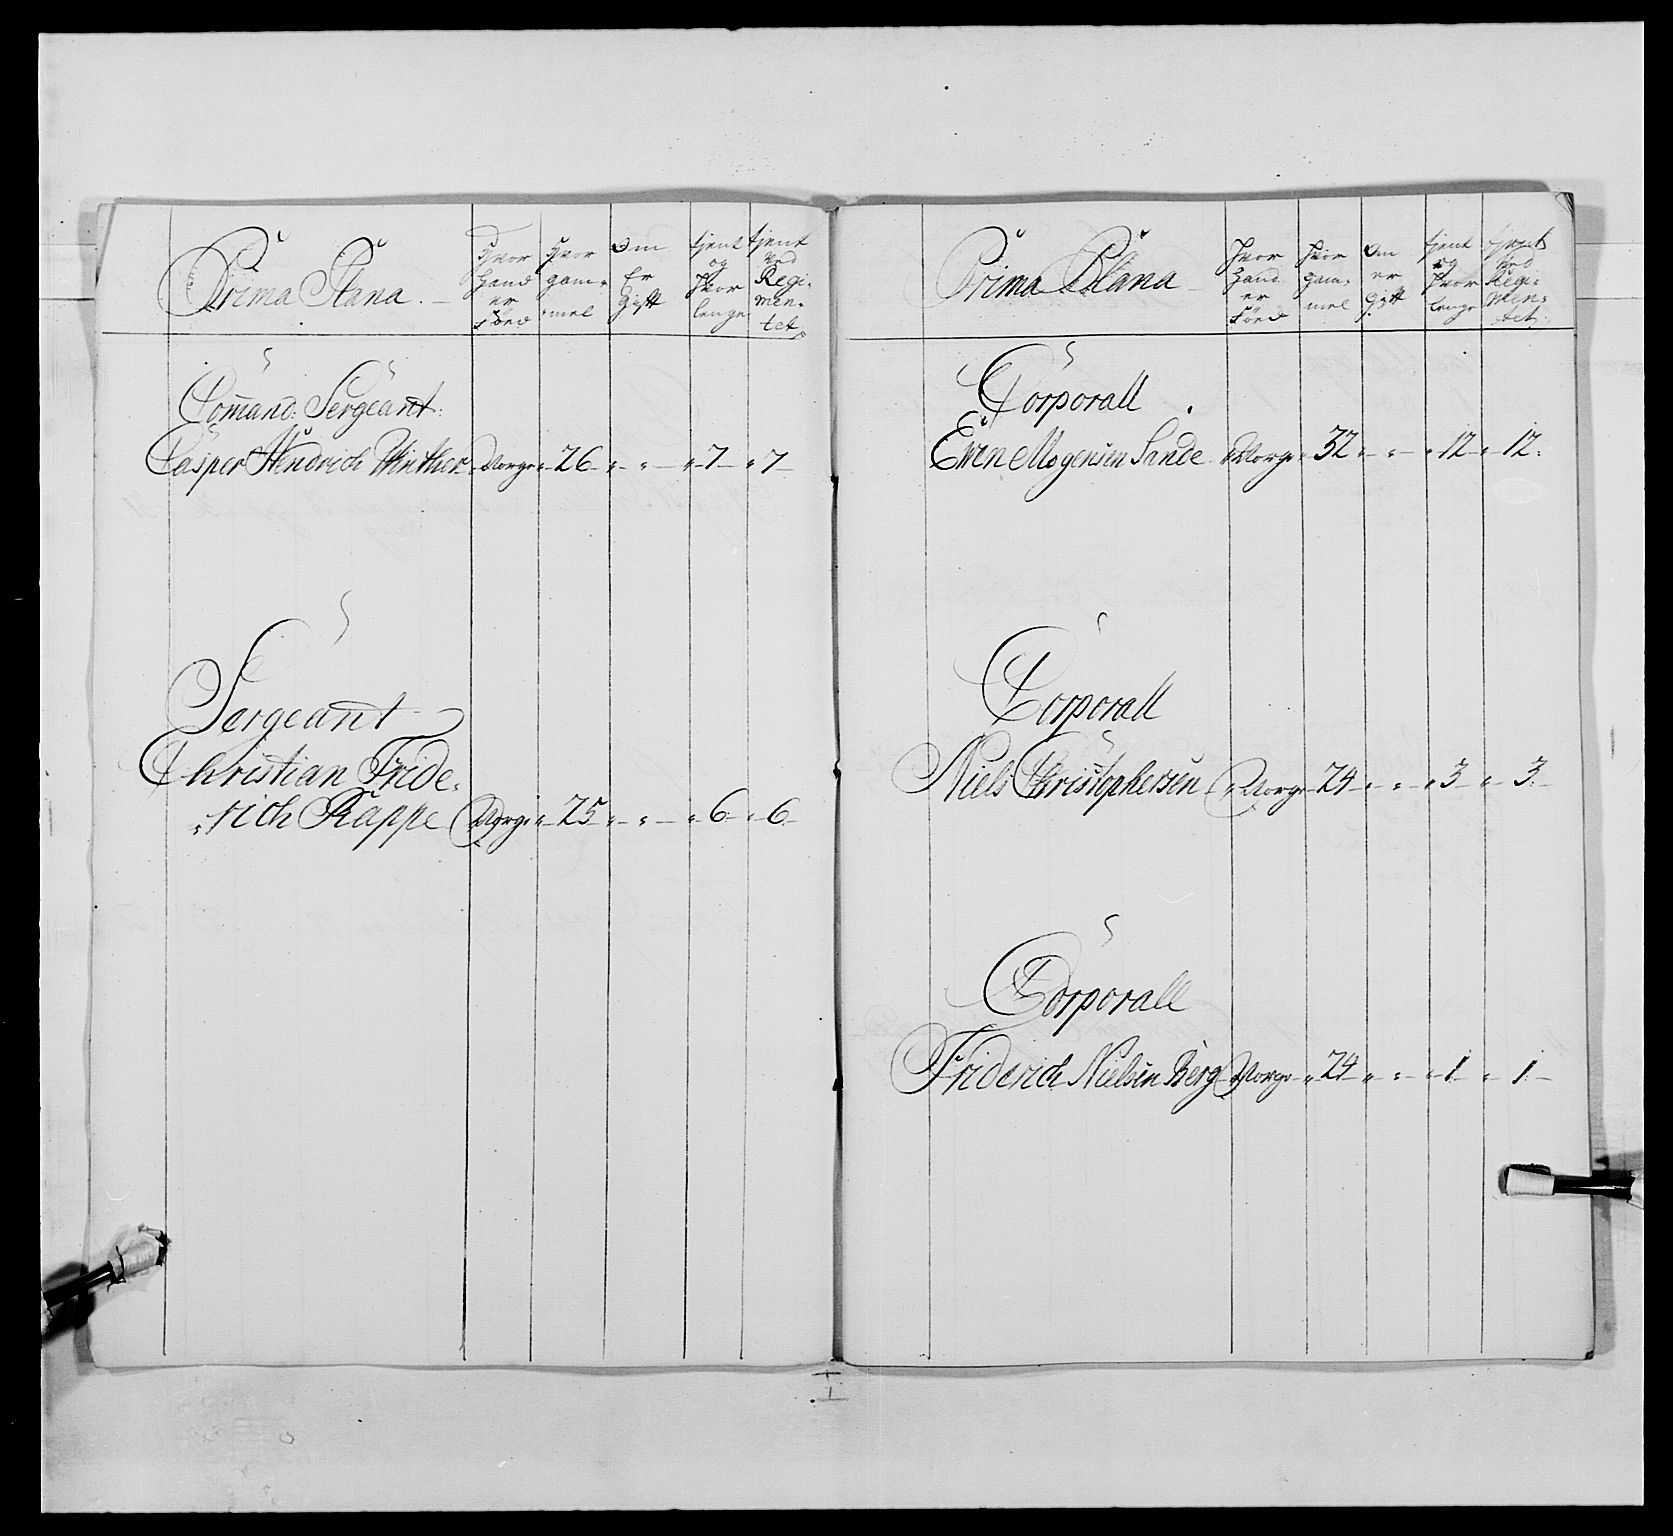 Prima Plana.
Hvor
Hand
er
Föed
Hvor
gam=
mel
Om
Er
Gift
tjent
og
Hvor
lenge
tjent
Ved
Regi=
men=
tet
Comand: Sergeant:
Casper Hendrich Winther Norge 26 " " 7 " 7
Sergeant
Christian Fride=
=rich Rappe Norge 25 " " 6 " 6
Prima Plana
Hvor
Hand
er
Föed
Hvor
gam=
mel
Om
er
Gift
tjent
og
Hvor
lenge
tjent
Ved
Regi=
men=
tet.
Corporall
Even Mogensen Sande Norge 32 " " 12 " 12
Corporall
Niels Christophersen Norge 24 " " 3 " 3
Corporall
Friderich Nielsen Berg Norge 24 " " 1 " 1